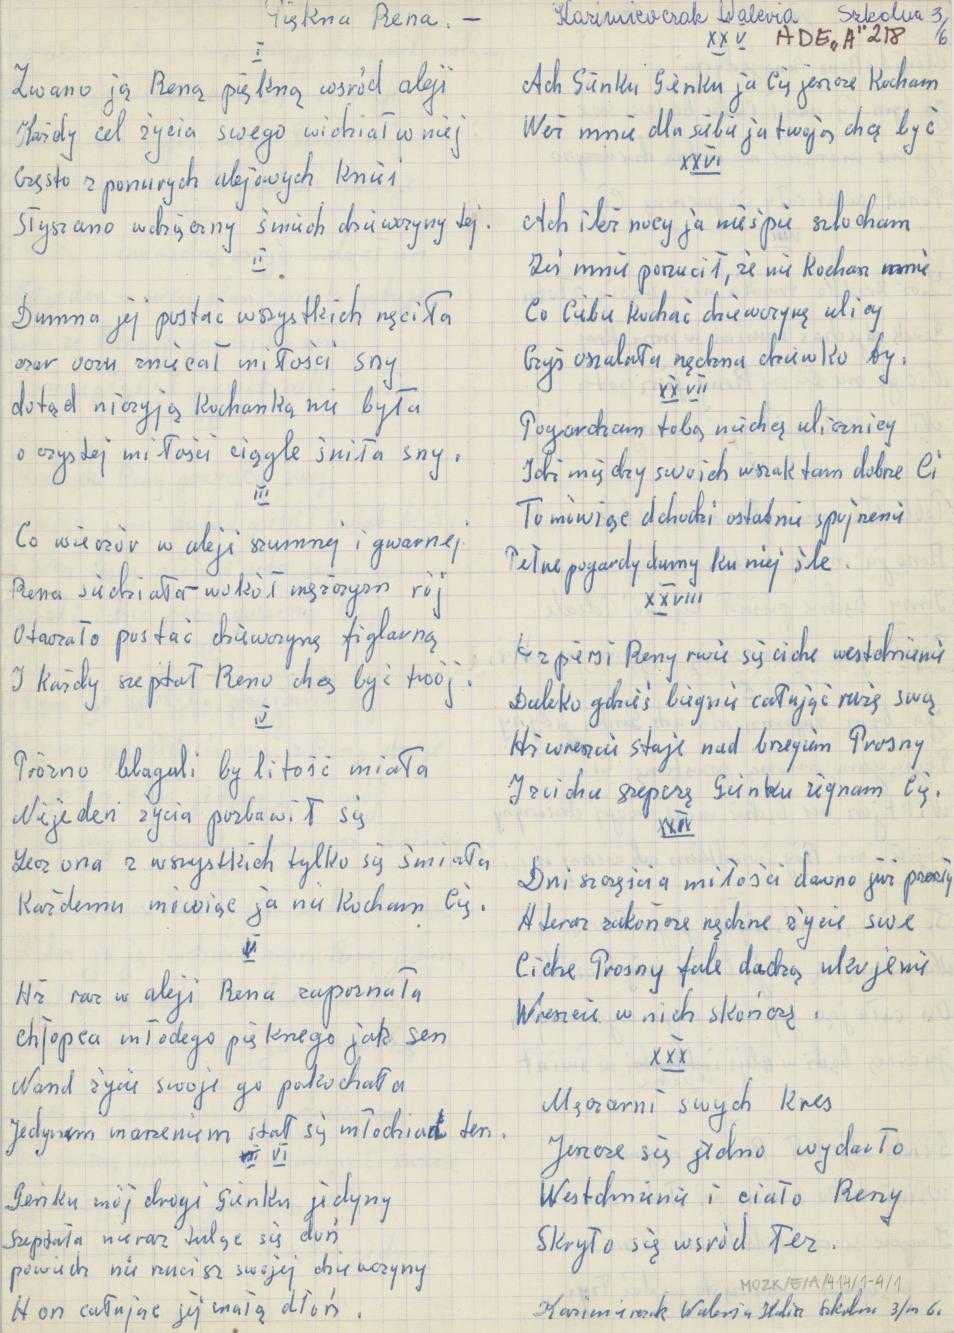 Piękna Rena. –
I
Zwano ją Reną piękną wsród aleji
Każdy cel życia swego widział w niej
Często z ponurych alejowych kniei
Słyszano wdzięczny śmiech dziewczyny tej.
II
Dumna jej postać wszystkich nęciła
czar oczu zniecał miłości sny
dotąd niczyją kochanką nie była
o czystej miłości ciągle śniła sny.
III
Co wieczór w aleji szumnej i gwarnej
Rena siedziała wokół męszczyzn rój
Otaczało postać dziewczynę figlarną
I każdy szeptał Reno chcę być twój.
IV
Próżno błagali by litość miała
Niejeden życia pozbawił się
Lecz ona z wszystkich tylko się śmiała
Każdemu mówiąc ja nie kocham Cię.
V
Aż raz w aleji Rena zapoznała
chłopca młodego pięknego jak sen
Nand życie swoje go pokochała
Jedynem marzeniem stał się młodzian ten.
VI
Gieńku mój drogi Gieńku jedyny
Szeptała nieraz tuląc się doń
powiedz nie rzucisz swojej dziewczyny
A on całując jej małą dłoń.
Kazimierczak Waleria Szkolna 3/6
ADE „A" 218
XXV
Ach Gieńku Gieńku ja Cię jeszcze kocham
Weź mnie dla siebie ja twoją chcę być
XXVI
Ach ileż nocy ja nieśpię szlocham
Żeś mnie porzucił, że nie kochasz mnie
Co Ciebie kochać dziewczynę ulicy
Czyś oszalała nędzna dziewko ty.
XXVII
Pogardzam tobą niechcę ulicznicy
Idź między swoich wszak tam dobrze Ci
To mówiąc odchodzi ostatnie spojrzenie
Pełne pogardy dumy ku niej śle.
XXVIII
A z piersi Reny rwie się ciche westchnienie
Daleko gdzieś biegnie całując różę swą
Aż wreszcie staje nad brzegiem Prosny
I z cicha szepczę Gieńku żegnam Cię.
XXIX
Dni szczęścia miłości dawno już przeszły
A teraz zakończe nędzne życie swe
Ciche Prosny fale dadzą ukojenie
Wreszcie w nich skończę.
XXX
Męczarni swych kres
Jeszcze się jedno wydarło
Westchnienie i ciało Reny
Skryło się wsród łez.
MOZK/E/A/414/1-4/1
Kazimierczak Waleria Kalisz Szkolna 3/m 6.